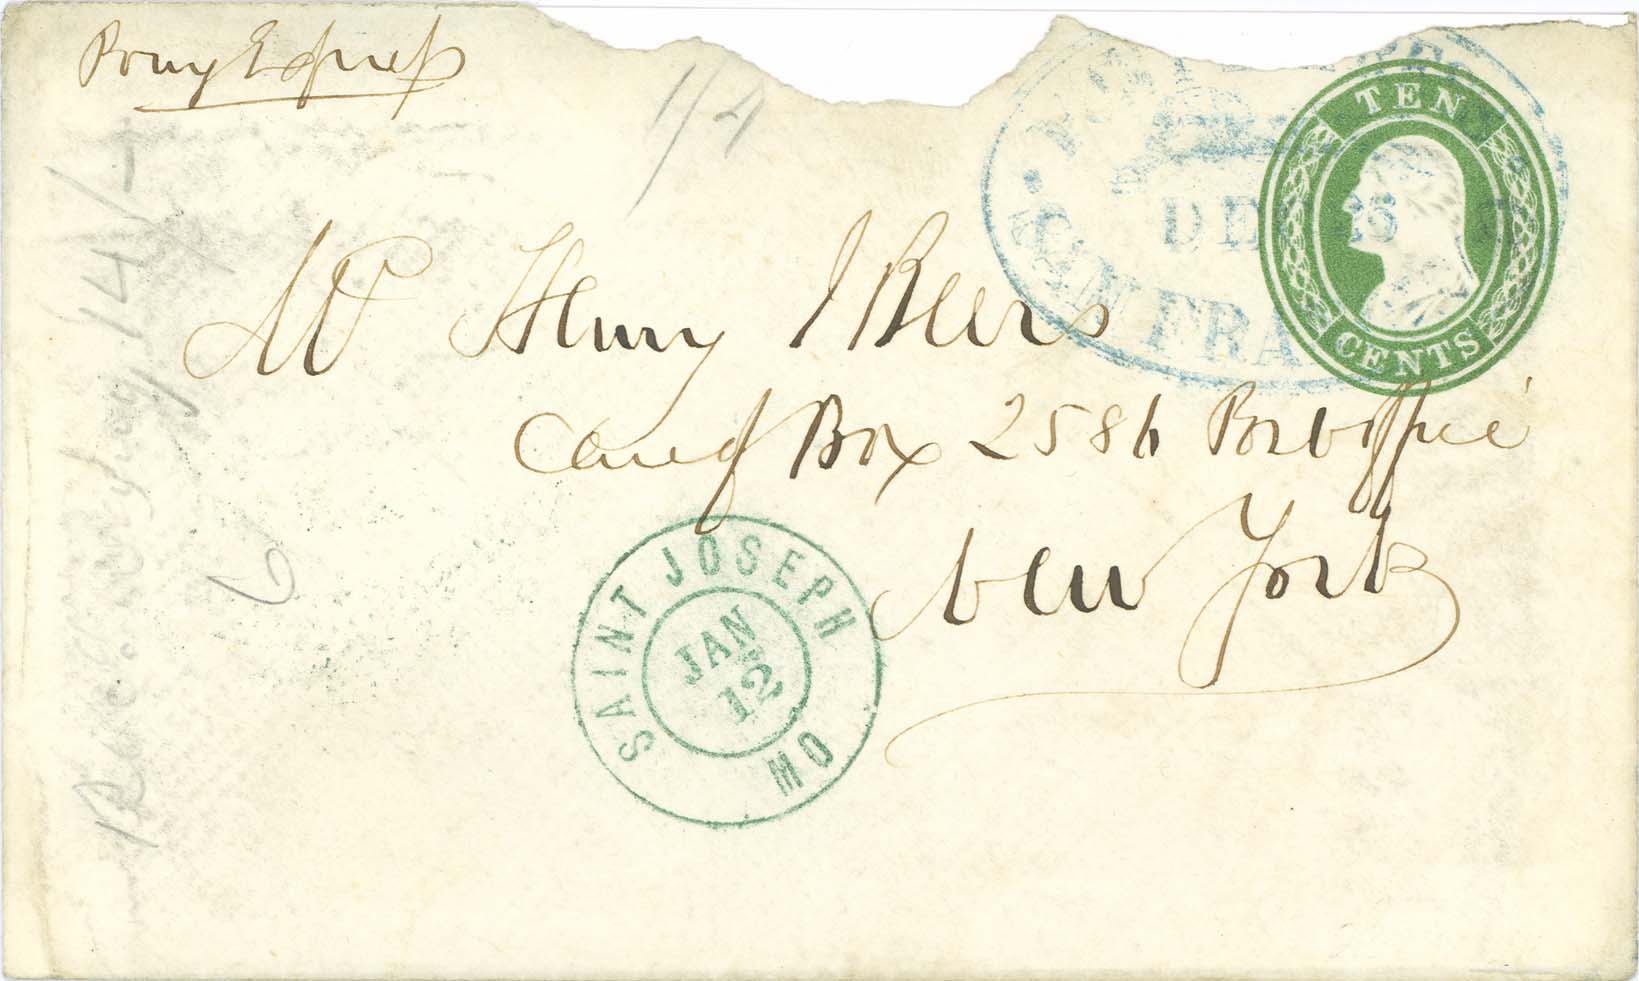 Pony Express
1/4
TEN
CENTS
DEC 25
SAN FRA
Mr Henry J Beers
Care of Box 2586 Post office
New York
SAINT JOSEPH
MO
JAN
12